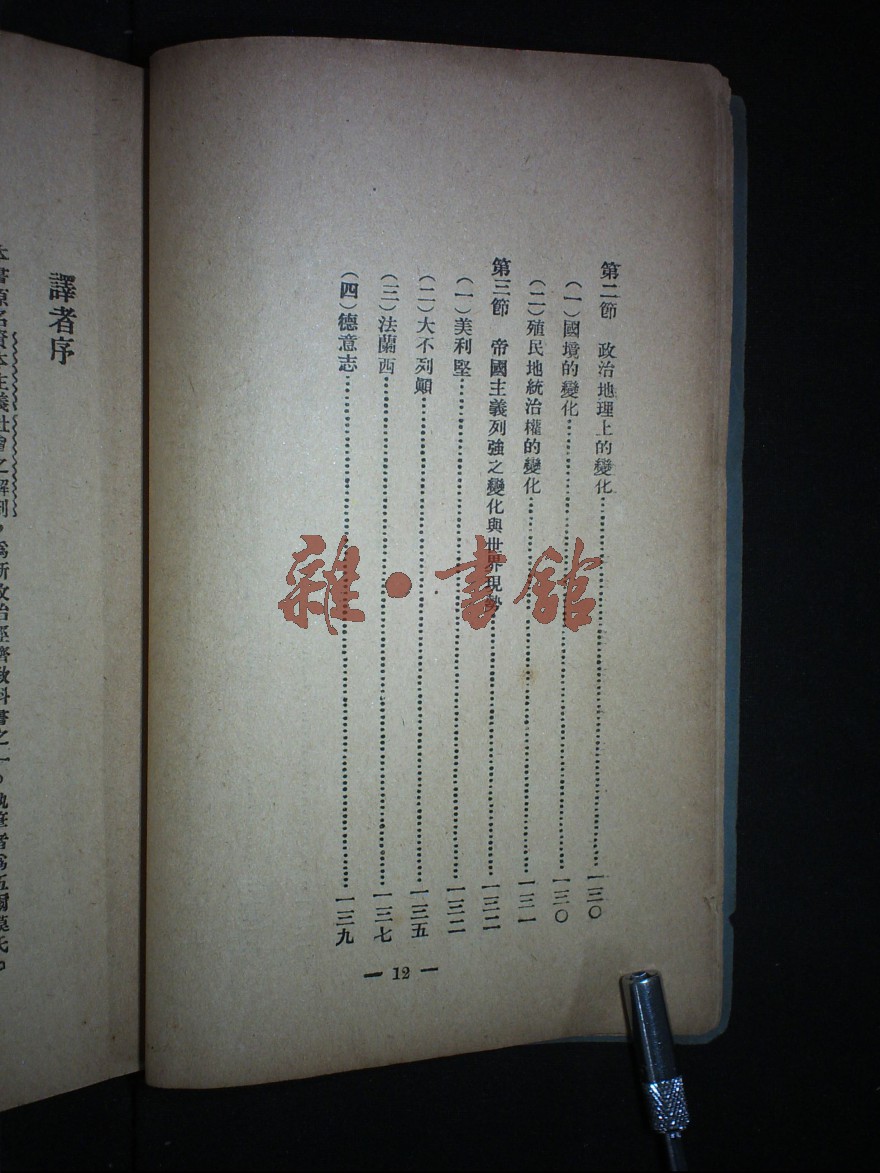 第二節　政治地理上的變化…………一三〇
（一）國境的變化…………一三〇
（二）殖民地統治權的變化…………一三一
第三節　帝國主義列強之變化與世界現勢…………一三二
（一）美利堅…………一三二
（二）大不列顚…………一三五
（三）法蘭西…………一三七
（四）德意志…………一三九
— 12 —
譯者序
本書原名資本主義社會之解剖，爲新政治經濟敎科書之一。執筆者爲伍爾模氏。
雜·書館